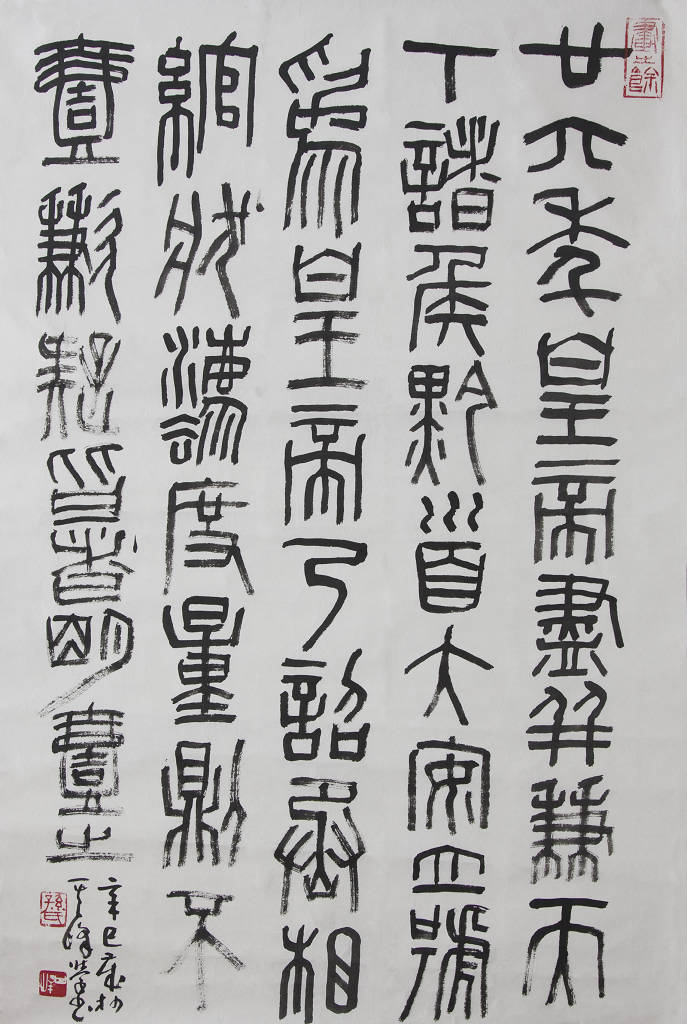 廿六年皇帝盡并兼天
下諸侯黔首大安立號
為皇帝乃詔丞相
綰狀灋度量則不
壹歉疑皆者明壹之
辛巳